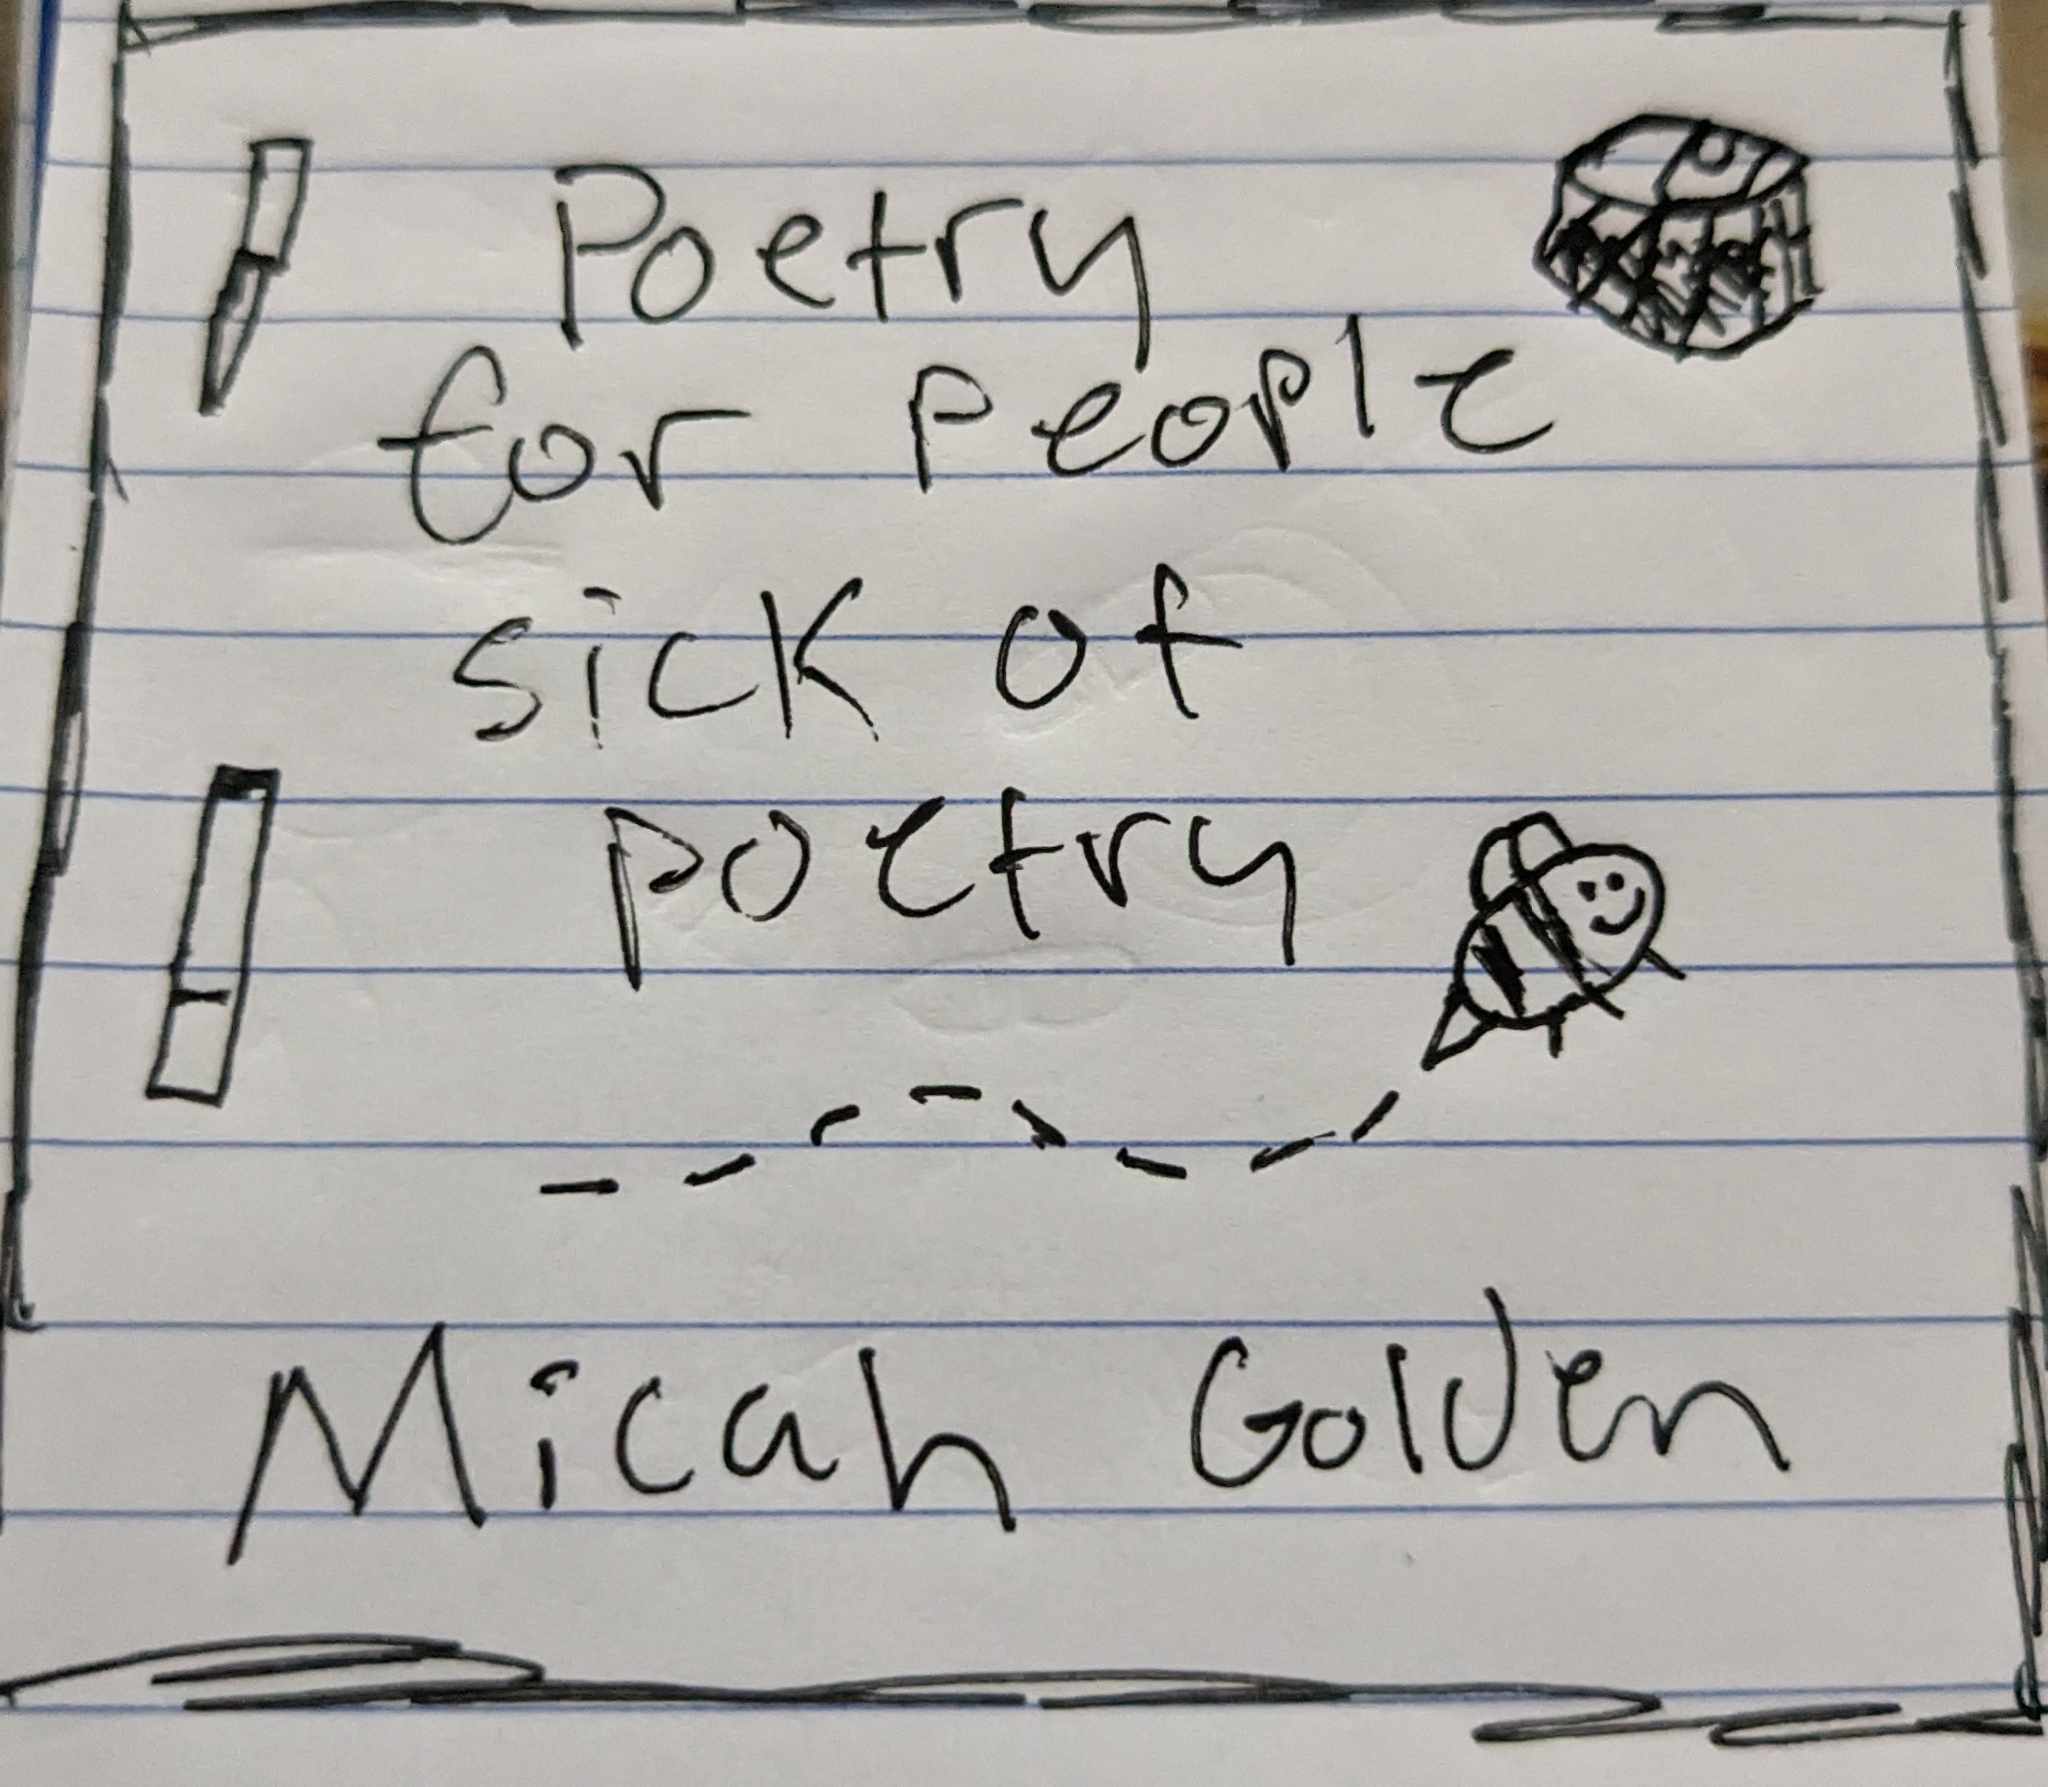 Poetry
for People
sick of
poetry
Micah Golden